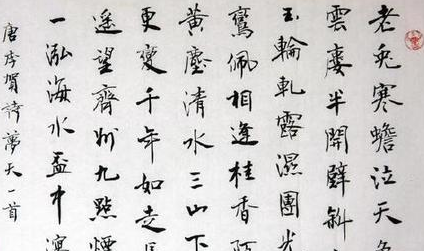 老兔寒蟾泣天色
雲廔半開壁斜
玉輪軋露濕團光
鸞佩相逢桂香陌
黃塵清水三山下
更變千年如走
遙望齊州九點煙
一泓海水盃中瀉
唐李賀詩夢天一首